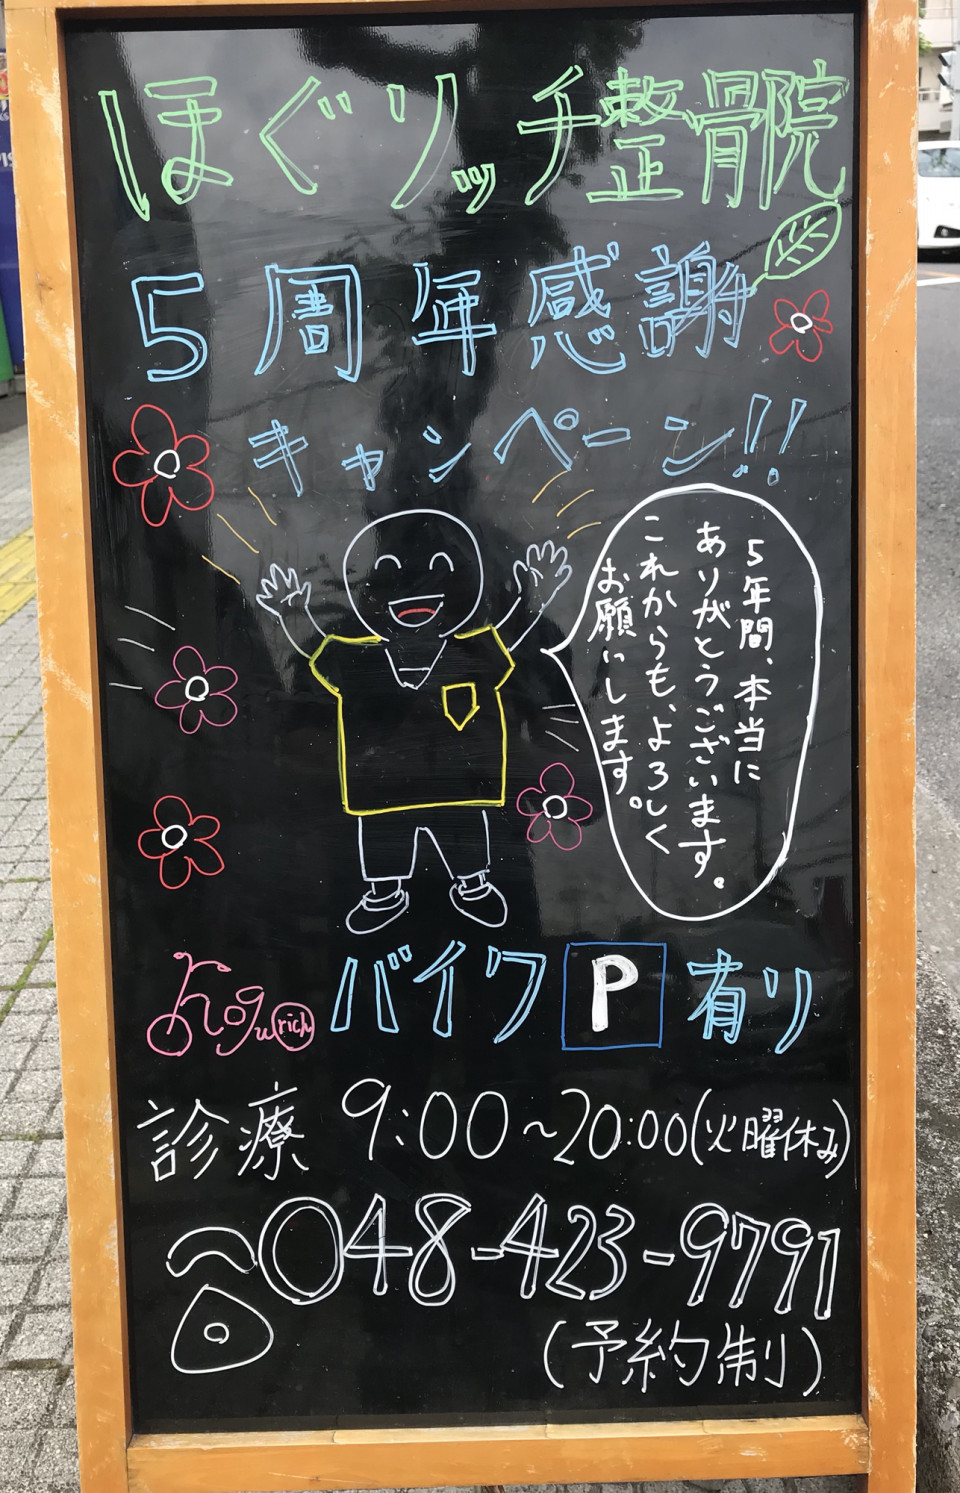 ほぐリッチ整骨院
5周年感謝
キャンペーン!!
5年間、本当に
ありがとうございます。
これからも、よろしく
お願いします。
hogu rich バイク P 有り
診療 9:00~20:00(火曜休み)
048-423-9791
(予約制)